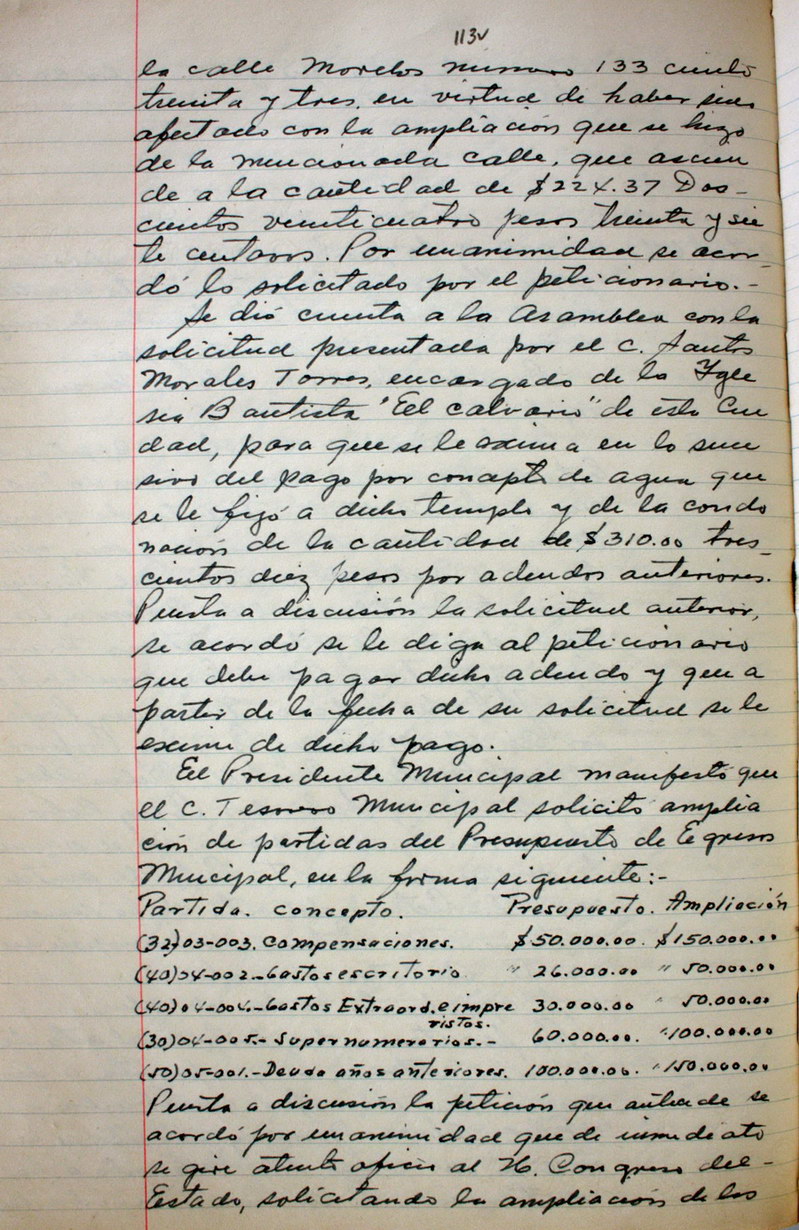 113v
la calle Morelos numero 133 ciento
treinta y tres, en virtud de haber sido
afectado con la ampliación que se hizo
de la mencionada calle, que ascien
de a la cantidad de $224.37 Dos-
cientos veinticuatro pesos treinta y sie
te centavos. Por unanimidad se acor-
dó lo solicitado por el peticionario.-
Se dió cuenta a la Asamblea con la
solicitud presentada por el C. Santos
Morales Torres, encargado de la Ygle
sia Bautista "El calvario" de esta Ciu
dad, para que se le exima en lo suce
sivo del pago por concepto de agua que
se le fijó a dicho templo y de la condo
nación de la cantidad de $310.00 tres-
cientos diez pesos por adeudos anteriores.
Puesta a discusión la solicitud anterior,
se acordó se le diga al peticionario
que debe pagar dicho adeudo y que a
partir de la fecha de su solicitud se le
exime de dicho pago.
El Presidente Municipal manifestó que
el C. Tesorero Municipal solicitó amplia
ción de partidas del Presupuesto de Egresos
Municipal, en la forma siguiente:-
Partida. concepto. Presupuesto. Ampliación
(32)03-003. Compensaciones. $50.000.00. $150.000.00
(40)04-002.-Gastos escritorio " 26.000.00 " 50.000.00
(40)04-004.-Gastos Extraord. e impre 30.000.00 " 50.000.00
vistos.
(30)04-005.- Supernumerarios.- 60.000.00. "100.000.00
(50)05-001.-Deuda años anteriores. 100.000.00. "150.000.00
Puesta a discusión la petición que antecede se
acordó por unanimidad que de inmediato
se gire atento oficio al H. Congreso del-
Estado, solicitando la ampliación de las